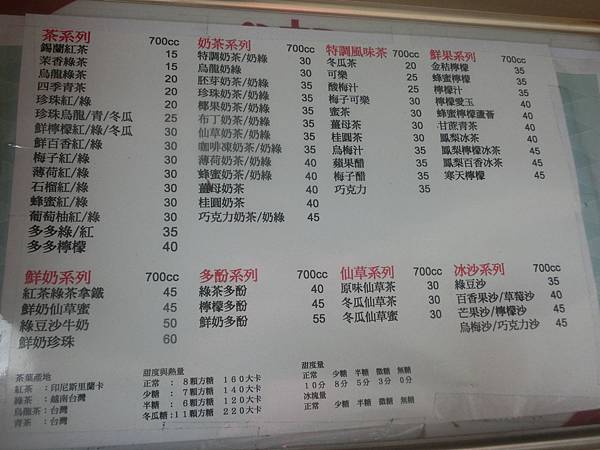 茶系列 700cc
錫蘭紅茶 15
茉香綠茶 15
烏龍綠茶 20
四季青茶 20
珍珠紅/綠 20
珍珠烏龍/青/冬瓜 25
鮮檸檬紅/綠/冬瓜 30
鮮百香紅/綠 30
梅子紅/綠 30
薄荷紅/綠 30
石榴紅/綠 30
蜂蜜紅/綠 30
葡萄柚紅/綠 30
多多綠/紅 35
多多檸檬 40
奶茶系列 700cc
特調奶茶/奶綠 30
烏龍奶綠 30
胚芽奶茶/奶綠 30
珍珠奶茶/奶綠 30
椰果奶茶/奶綠 30
布丁奶茶/奶綠
仙草奶茶/奶綠
咖啡凍奶茶/奶綠
薄荷奶茶/奶綠 40
蜂蜜奶茶/奶綠 30
薑母奶茶
桂圓奶茶
巧克力奶茶/奶綠 45
特調風味茶 700cc
冬瓜茶 20
可樂 25
酸梅汁 25
梅子可樂 30
蜜茶 30
薑母茶 30
桂圓茶 30
烏梅汁 35
蘋果醋 35
梅子醋 35
巧克力 35
鮮果系列 700cc
金桔檸檬 35
蜂蜜檸檬 35
檸檬汁 35
檸檬愛玉 40
蜂蜜檸檬蘆薈 40
甘蔗青茶 30
鳳梨冰茶 35
鳳梨檸檬冰茶 45
鳳梨百香冰茶 45
寒天檸檬 45
鮮奶系列 700cc
紅茶綠茶拿鐵 45
鮮奶仙草蜜 45
綠豆沙牛奶 50
鮮奶珍珠 60
多酚系列 700cc
綠茶多酚 40
檸檬多酚 45
鮮奶多酚 55
仙草系列 700cc
原味仙草茶 30
冬瓜仙草茶 30
冬瓜仙草蜜 30
冰沙系列 700cc
綠豆沙 35
百香果沙/草莓沙 40
芒果沙/檸檬沙 45
烏梅沙/巧克力沙 45
茶葉產地
紅茶 : 印尼斯里蘭卡
綠茶 : 越南台灣
烏龍茶 : 台灣
青茶 : 台灣
甜度與熱量
正常 : 8顆方糖 160大卡
少糖 : 7顆方糖 140大卡
半糖 : 6顆方糖 120大卡
冬瓜糖:11顆方糖 220大卡
甜度量
正常 少糖 半糖 微糖 無糖
10分 8分 5分 3分 0分
冰塊量
正常 少糖 半糖 微糖 無糖